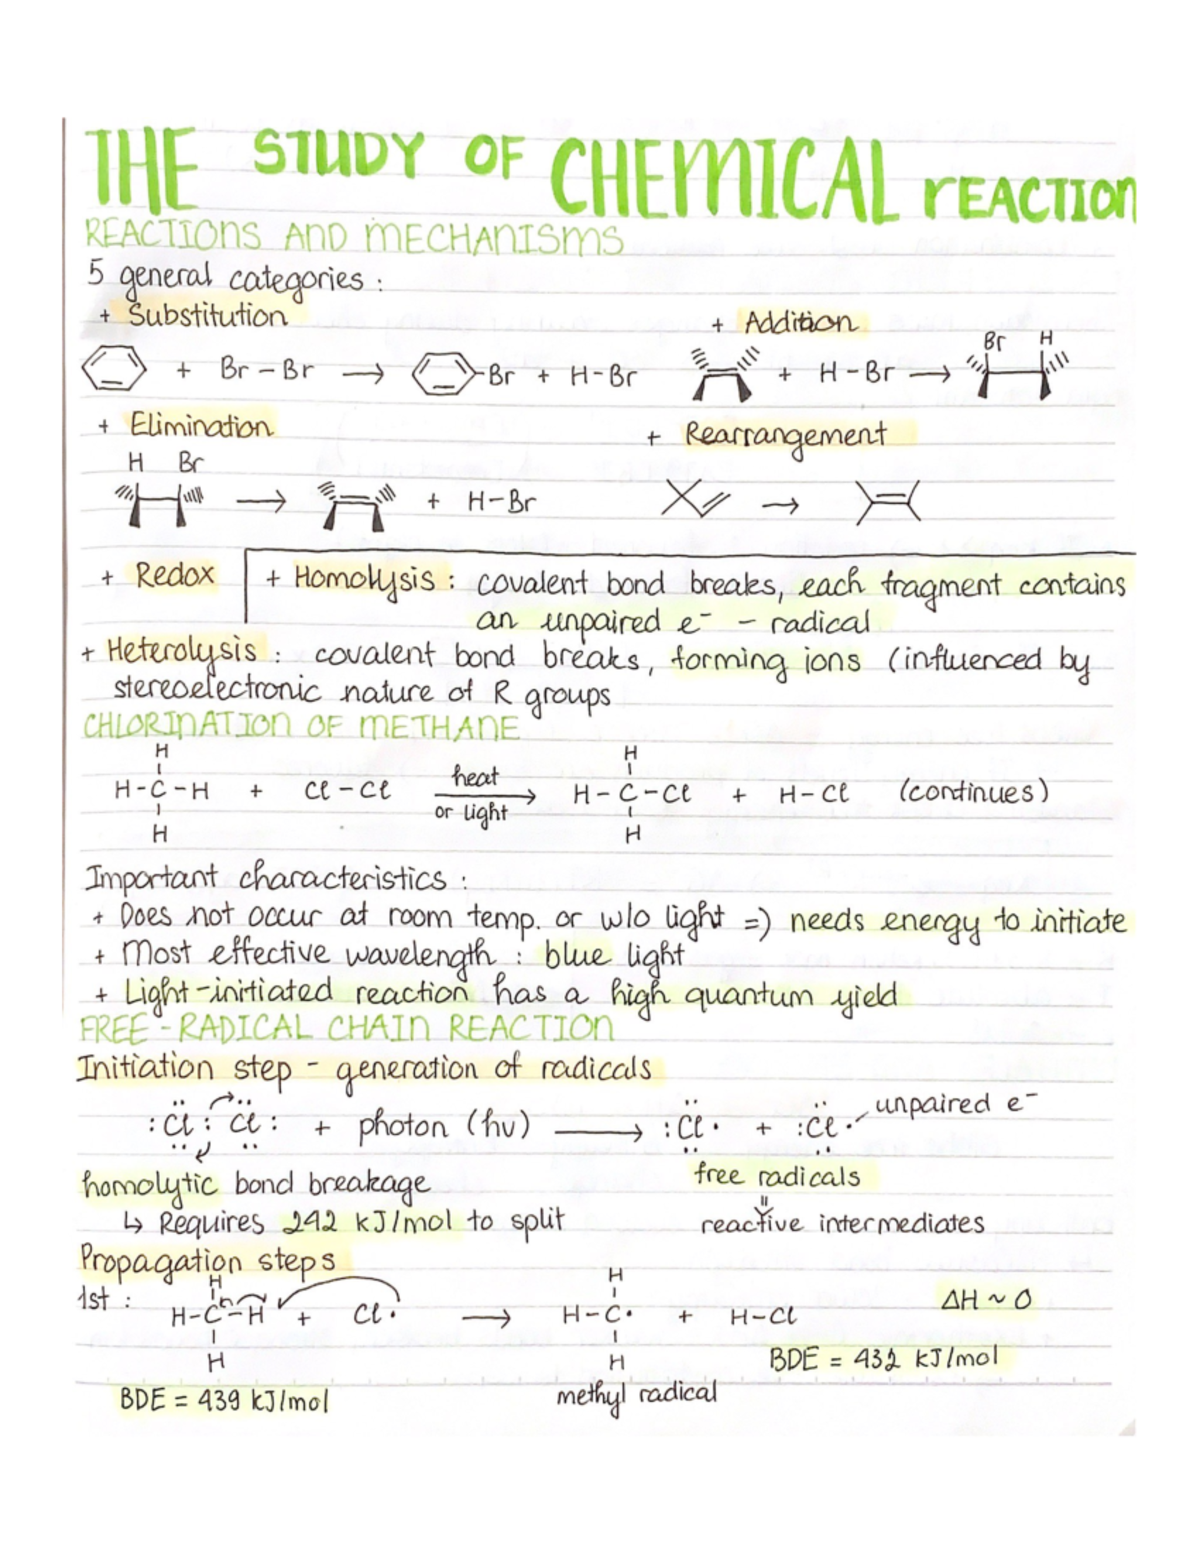 THE STUDY OF CHEMICAL REACTION
REACTIONS AND MECHANISMS
5 general categories :
+ Substitution
+ Br – Br → -Br + H-Br
+ Addition
+ H – Br → Br H
+ Elimination
H Br
→ + H-Br
+ Rearrangement
→
+ Redox
+ Homolysis : covalent bond breaks, each fragment contains
an unpaired e⁻ – radical
+ Heterolysis : covalent bond breaks, forming ions (influenced by
stereoelectronic nature of R groups
CHLORINATION OF METHANE
H H
H-C-H + Cl-Cl heat or light → H-C-Cl + H-Cl (continues)
H H
Important characteristics :
+ Does not occur at room temp. or w/o light =) needs energy to initiate
+ Most effective wavelength : blue light
+ Light-initiated reaction has a high quantum yield
FREE-RADICAL CHAIN REACTION
Initiation step - generation of radicals
:Cl : Cl: + photon (hν) → :Cl· + :Cl· unpaired e⁻
homolytic bond breakage
free radicals
↳ Requires 242 kJ/mol to split
reactive intermediates
Propagation steps
H H
1st : H-C-H + Cl· → H-C· + H-Cl ΔH ~ 0
H H
BDE = 432 kJ/mol
BDE = 439 kJ/mol
methyl radical